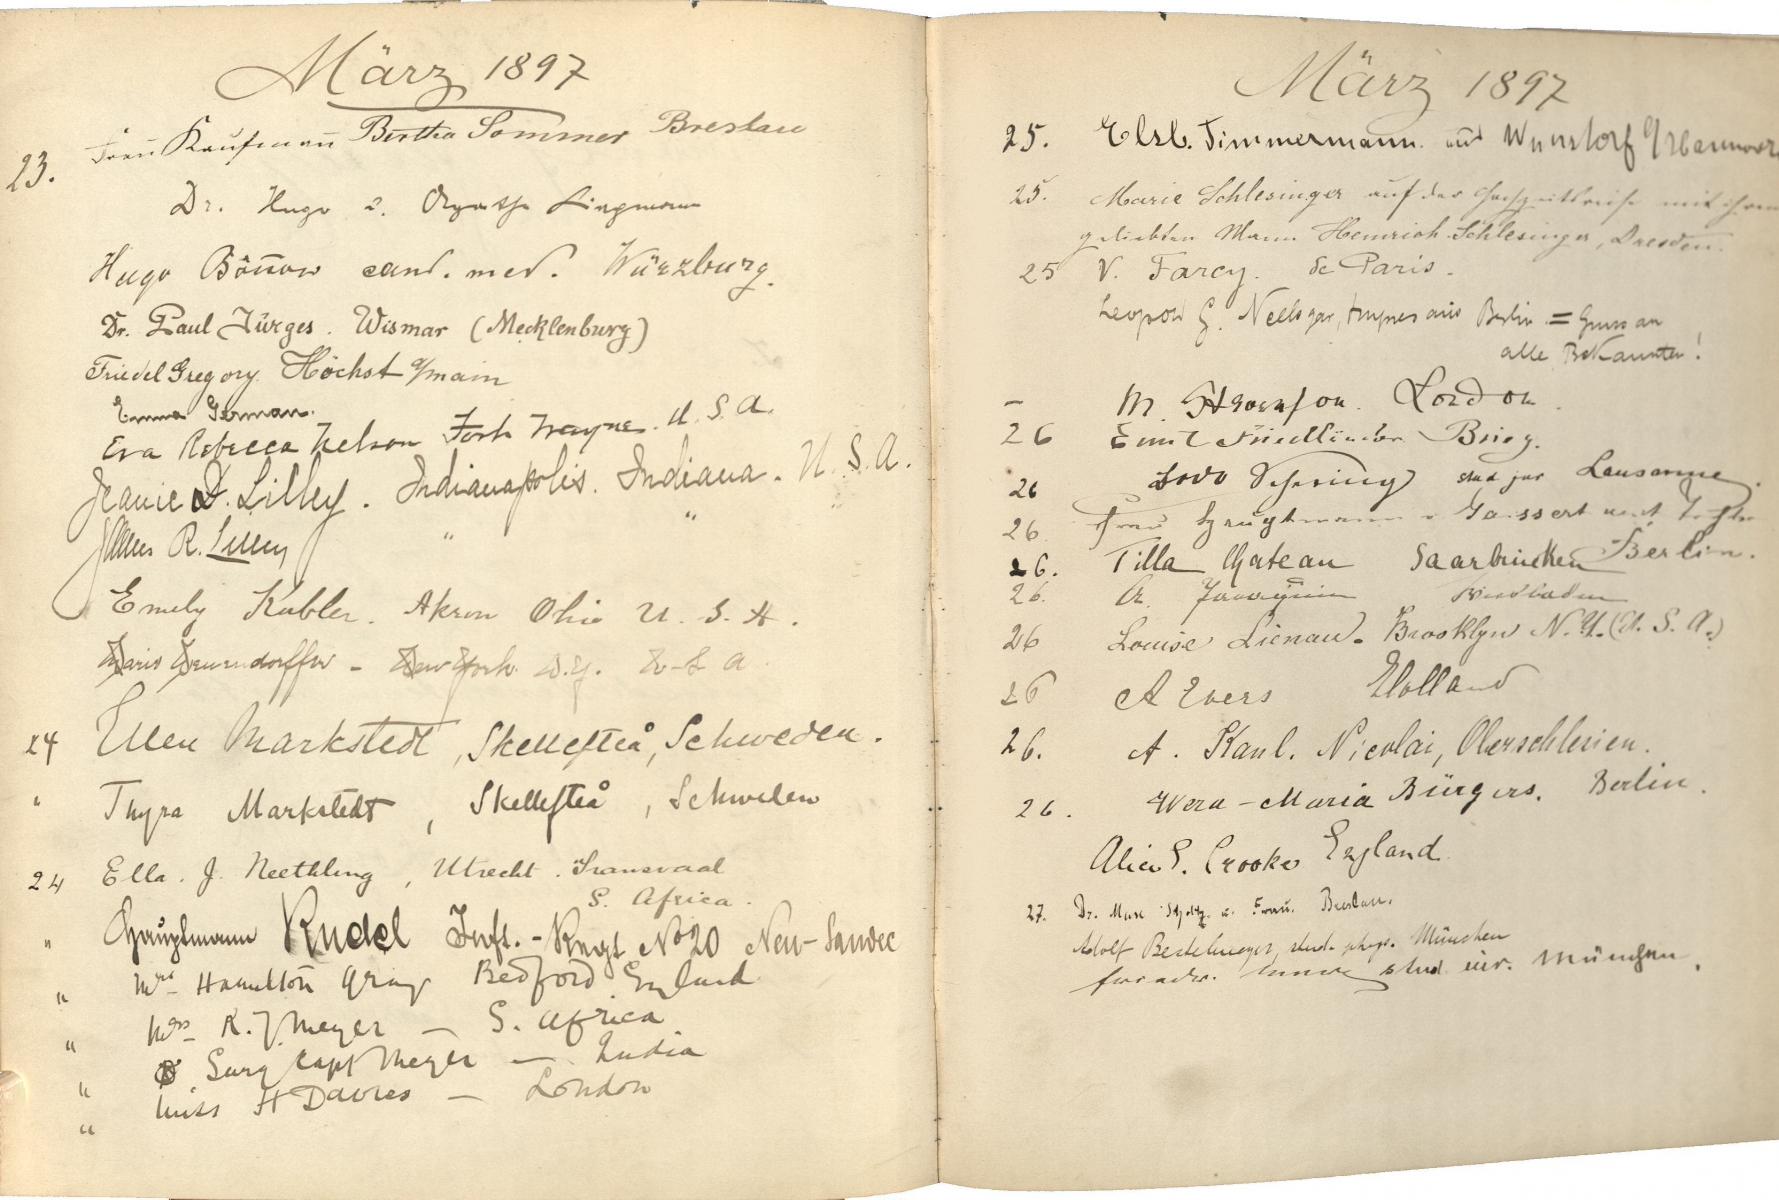 März 1897
Frau Kaufmann Bertha Sommer Breslau
23.
Dr. Hugo u. Liegmann
Hugo Bönow cand. med. Würzburg.
Dr. Paul Jürges. Wismar (Mecklenburg)
Friedel Gregory Höchst a/main
Emma German.
Eva Rebecca Nelson Fort Wayne. U. S. A.
Jeanie D. Lilley. Indianapolis. Indiana. U. S. A.
James R. Lilley " " "
Emily Kubler. Akron Ohio U. S. A.
New York N.Y. U-S A.
24 Ellen Markstedt, Skellefteå, Schweden.
" Thyra Markstedt, Skellefteå, Schweden
24 Ella. J. Neethling, Utrecht. Transvaal
S. Africa.
" Hauptmann Rudel Inft.-Rngt No 20 Neu-Sandec
" Mrs Hamilton Gray Bedford England
" Mrs K. J. Meyer — S. Africa
" Surg Capt Meyer — India
" Miss H Davies — London
März 1897
25. Elsb. Timmermann. aus Wunstorf b/Hannover
25. Marie Schlesinger auf der Hochzeitsreise mit ihrem
geliebten Mann Heinrich Schlesinger, Dresden.
25 V. Farcy. de Paris.
Leopold aus Berlin = Gruss an
alle Bekannten!
— M. Stevenson. London.
26 Emil Friedländer Brieg.
26 stud jur Lausanne.
26 Frau Gaissert und Tochter
Berlin.
26. Tilla Chateau Saarbrücken
26. Wiesbaden
26 Louise Lienau. Brooklyn N.Y. (U. S. A.)
26 A Evers Holland
26. A. Kaul. Nicolai, Oberschlesien.
26. Wera-Maria Bürgers. Berlin.
Alice S. Crooke England
27. Dr. Max u. Frau. Breslau.
Adolf Bestelmeyer, stud. phys. München
stud. jur. München.